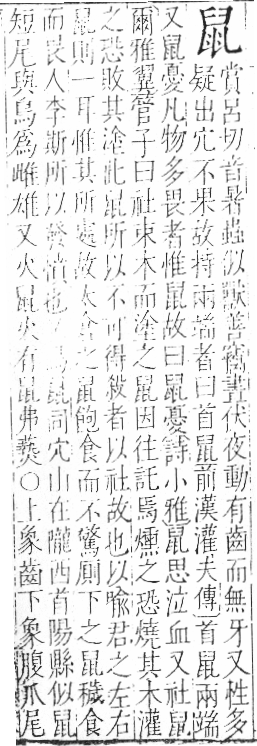 鼠
賞呂切音暑蟲似獸善竊晝伏夜動有齒而無牙又性多
疑出穴不果故持兩端者曰首鼠前漢灌夫傳首鼠兩端
又鼠憂凡物多畏者惟鼠故曰鼠憂詩小雅鼠思泣血又社鼠
爾雅翼管子曰社束木而塗之鼠因往託焉燻之恐燒其木灌
之恐敗其塗此鼠所以不可得殺者以社故也以喻君之左右
鼠則一耳惟其所處故太倉之鼠飽食而不驚廁下之鼠穢食
而畏人李斯所以發憤也鼠同穴山在隴西首陽縣似鼠
短尾與鳥爲雌雄又火鼠火有鼠弗爇〇上象齒下象腹爪尾